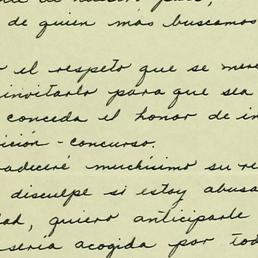 de quien más buscamos
el respeto que se mere
invitarlo para que sea
conceda el honor de in
ición - concurso.
adeceré muchísimo su re
disculpe si estoy abusa
dad, quiero anticiparle
sería acogida por tod